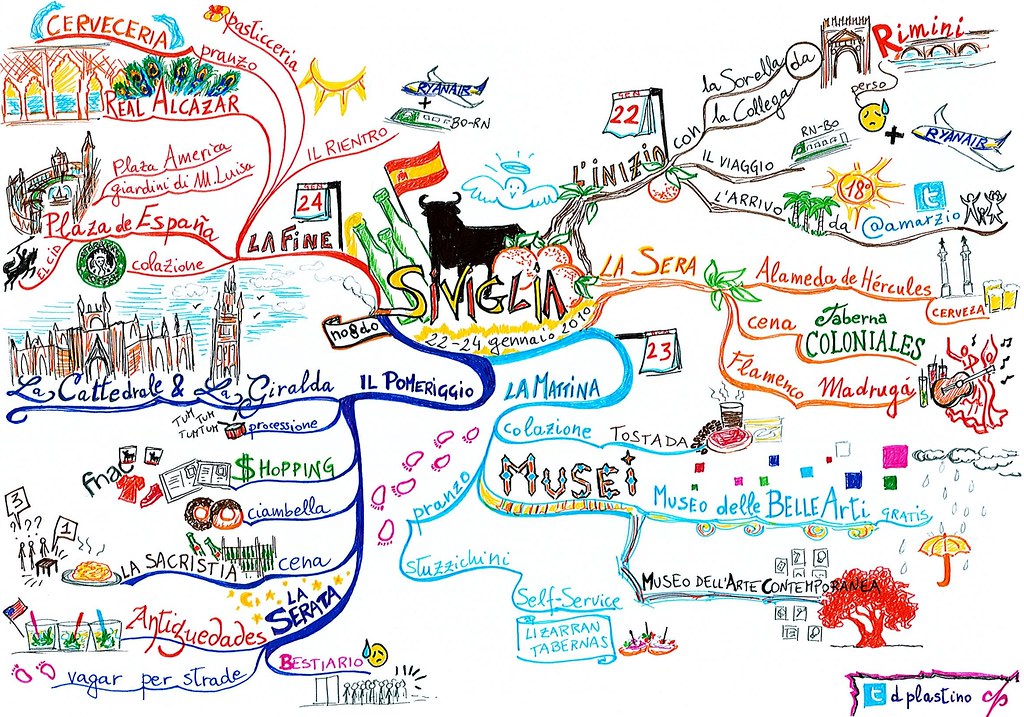 SIVIGLIA
22-24 gennaio 2010
nonno
L'INIZIO
GEN
22
con
la Sorella
la Collega
da
Rimini
perso
IL VIAGGIO
RN-BO
+
RYANAIR
L'ARRIVO
18°
da
@amarzio
LA SERA
Alameda de Hércules
CERVEZA
cena
Taberna
COLONIALES
Flamenco
Madrugá
23
LA MATTINA
colazione
TOSTADA
MUSEI
MUSEO delle BELLE Arti
GRATIS
MUSEO DELL'ARTE CONTEMPORANEA
pranzo
Stuzzichini
Self-Service
LIZARRAN
TABERNAS
IL POMERIGGIO
La Cattedrale & La Giralda
TUM TUM
TUMTUM
processione
$HOPPING
fnac
ciambella
cena
LA SACRISTIA
3
???
1
LA
SERATA
Antiguedades
vagar per strade
BESTIARIO
LA FINE
GEN
24
IL RIENTRO
RYANAIR
+
BO-RN
pasticceria
pranzo
CERVECERIA
REAL ALCAZAR
Plaza America
giardini di M. Luisa
Plaza de España
EL CID
colazione
d plastino
dp